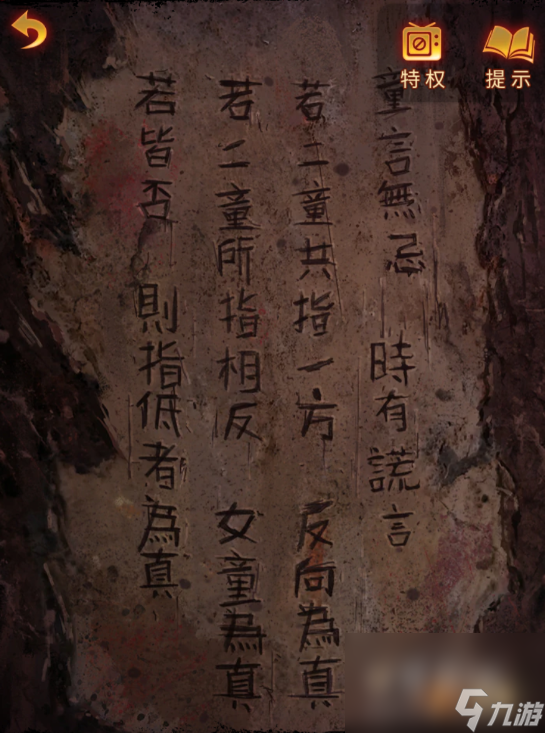 特权
提示
童言無忌 時有謊言
若二童共指一方 反向為真
若二童所指相反 女童為真
若皆否 則指低者為真
九游